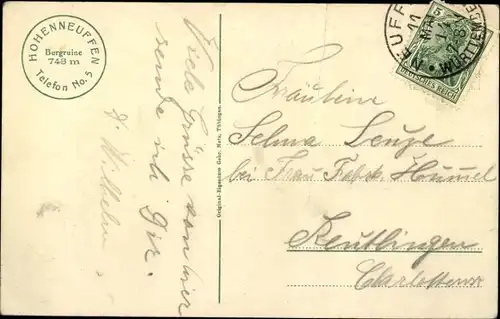 HOHENNEUFFEN
Burgruine
743 m
Telefon No. 5
Viele Grüsse von hier
sende ich Dir.
Wilhelm
Original-Eigentum Gebr. Metz, Tübingen.
NEUFFEN
11 MAI
WÜRTTEMBERG
5
DEUTSCHES REICH
Fräulein
Selma Leuze
bei Frau Fabrk. Hummel
Reutlingen
Charlottenstr